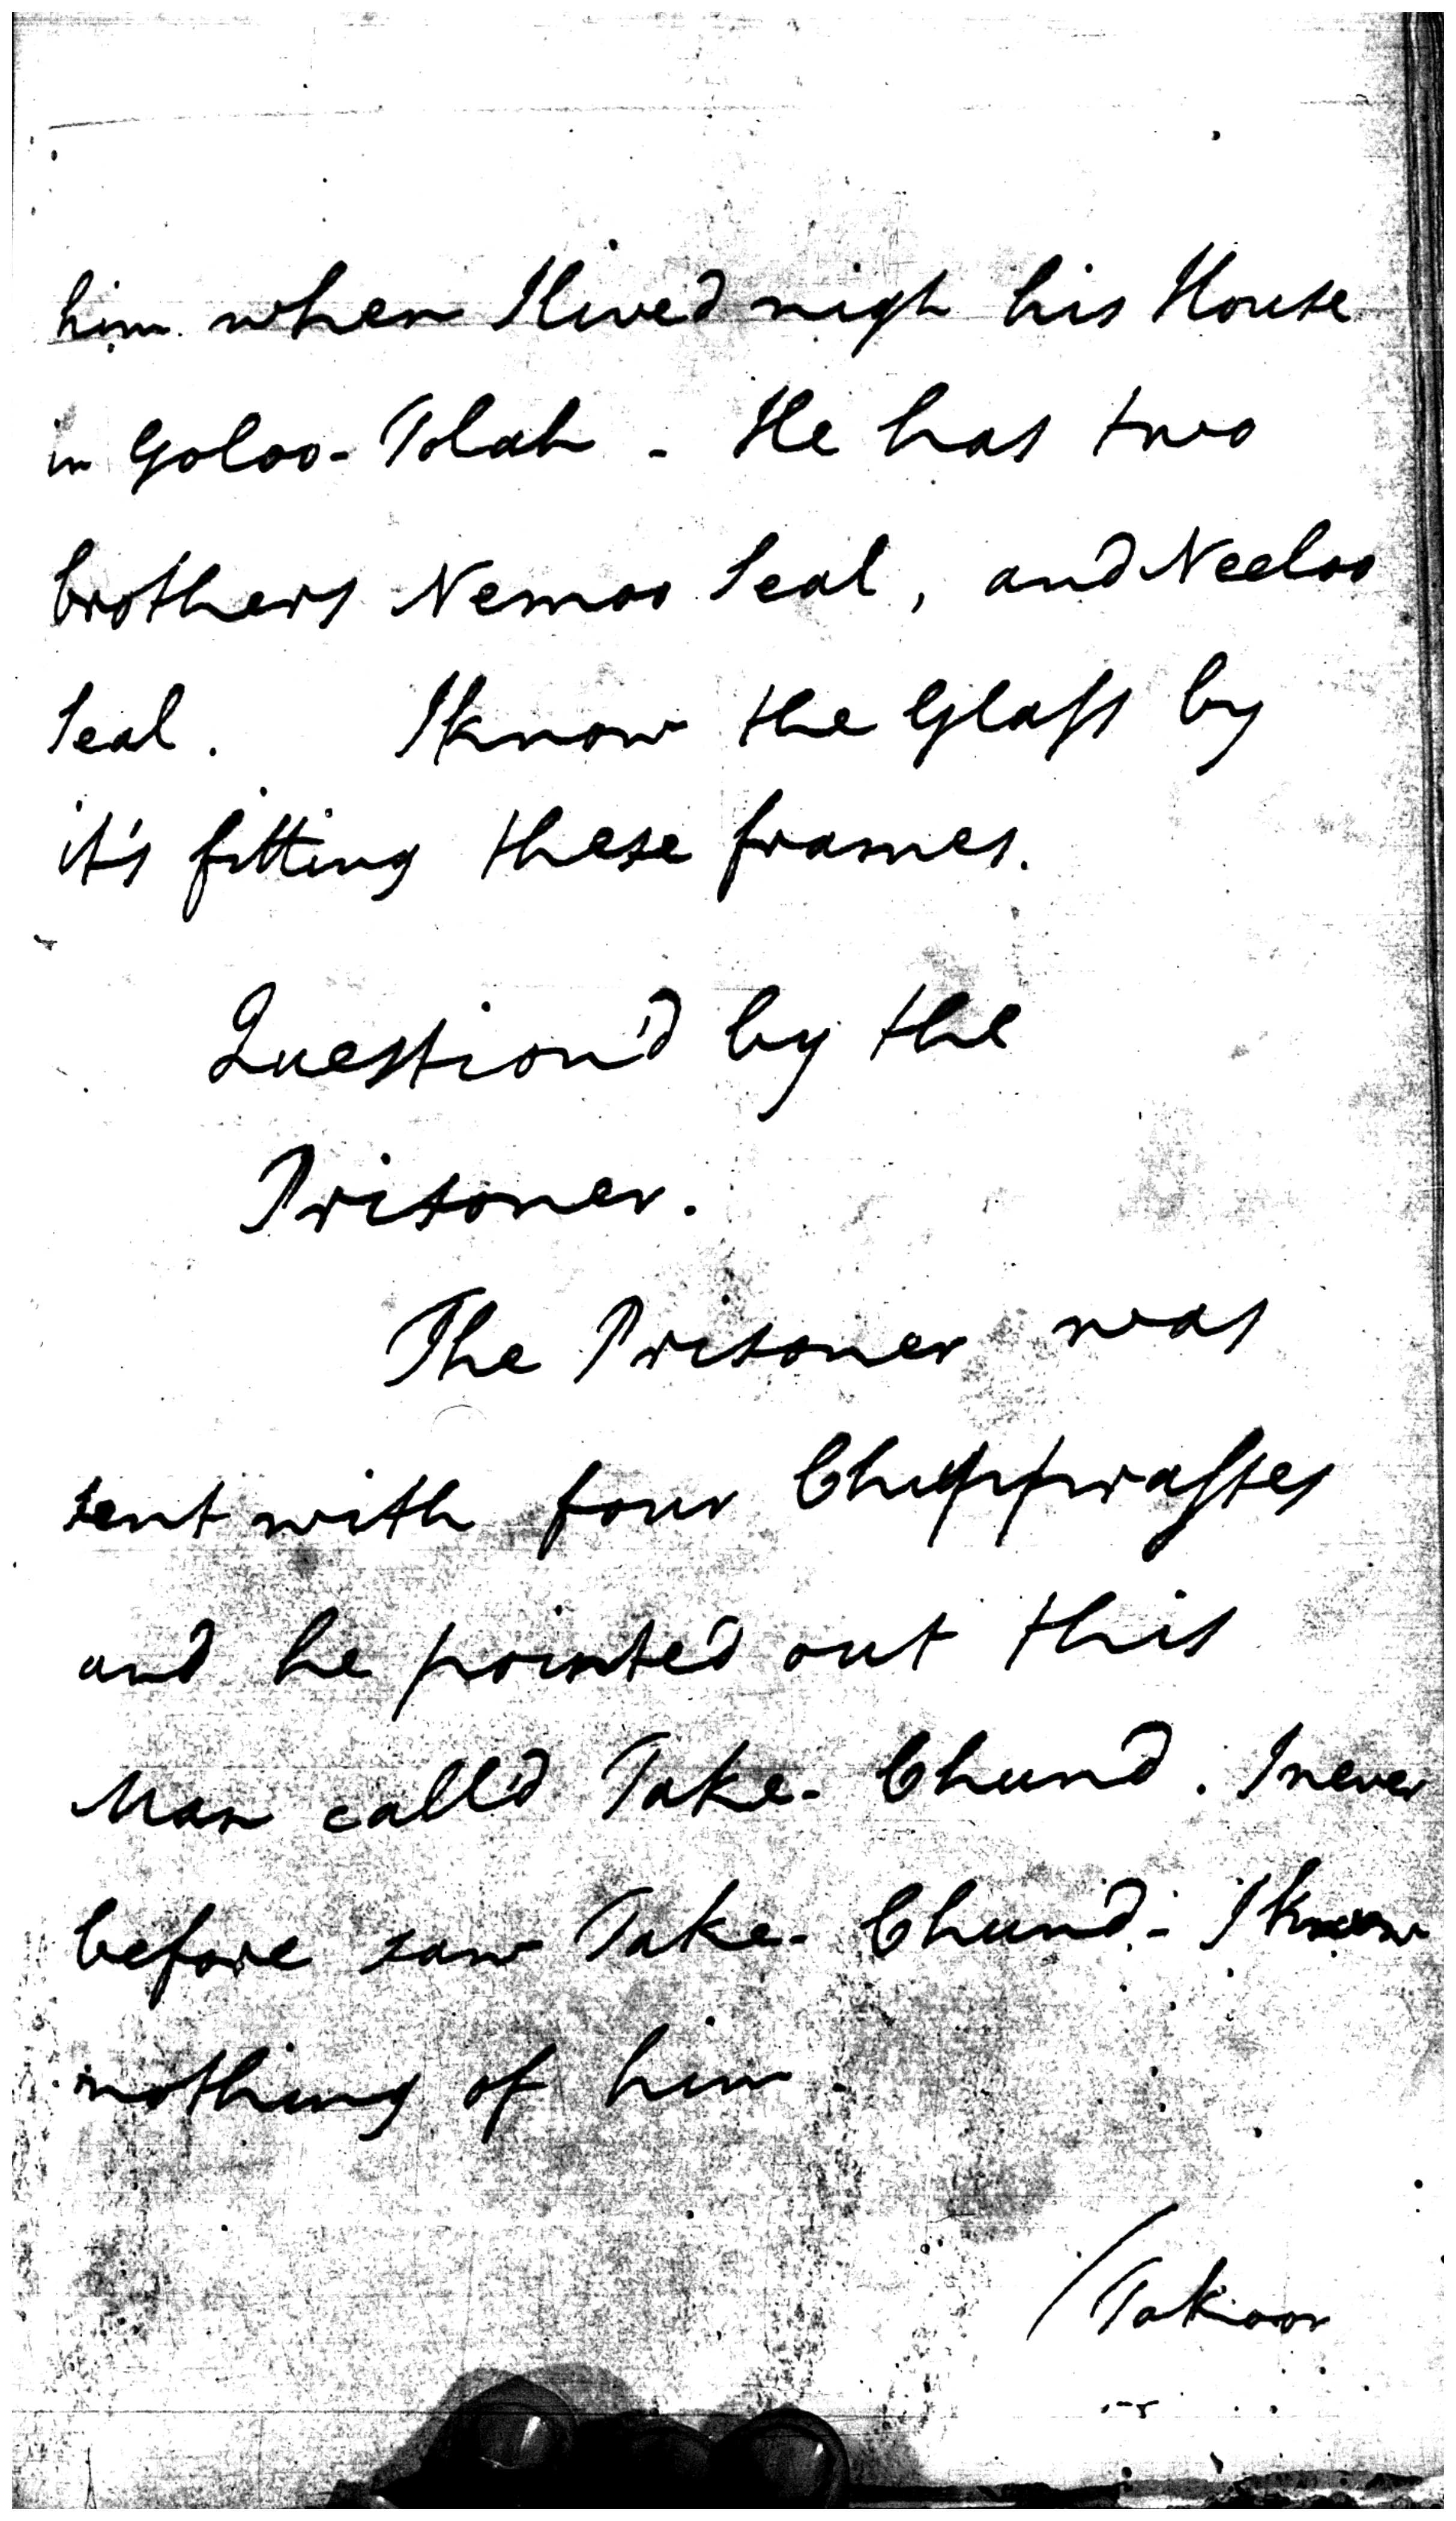 him when I lived nigh his House
in Goloo-Tolah - He has two
brothers Nemoo Seal, and Neeloo
Seal. I know the Glass by
it's fitting these frames.
Question'd by the
Prisoner.
The Prisoner was
sent with four Chupprasses
and he pointed out this
Man call'd Take-Chund. I never
before saw Take-Chund - I know
nothing of him -
/Takoor